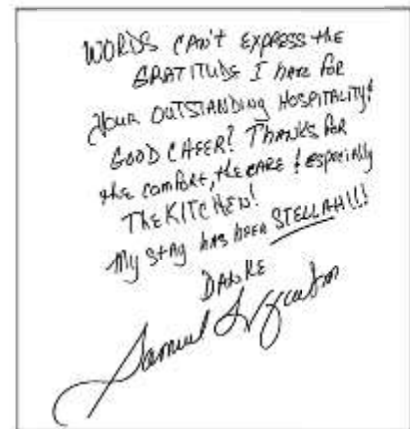 WORDS CAN'T EXPRESS the
GRATITUDE I have for
YOUR OUTSTANDING HOSPITALITY &
GOOD CHEER! THANKS FOR
the comfort, the CARE & especially
THE KITCHEN!
My stay has been STELLAH!!!
DANKE
Samuel L